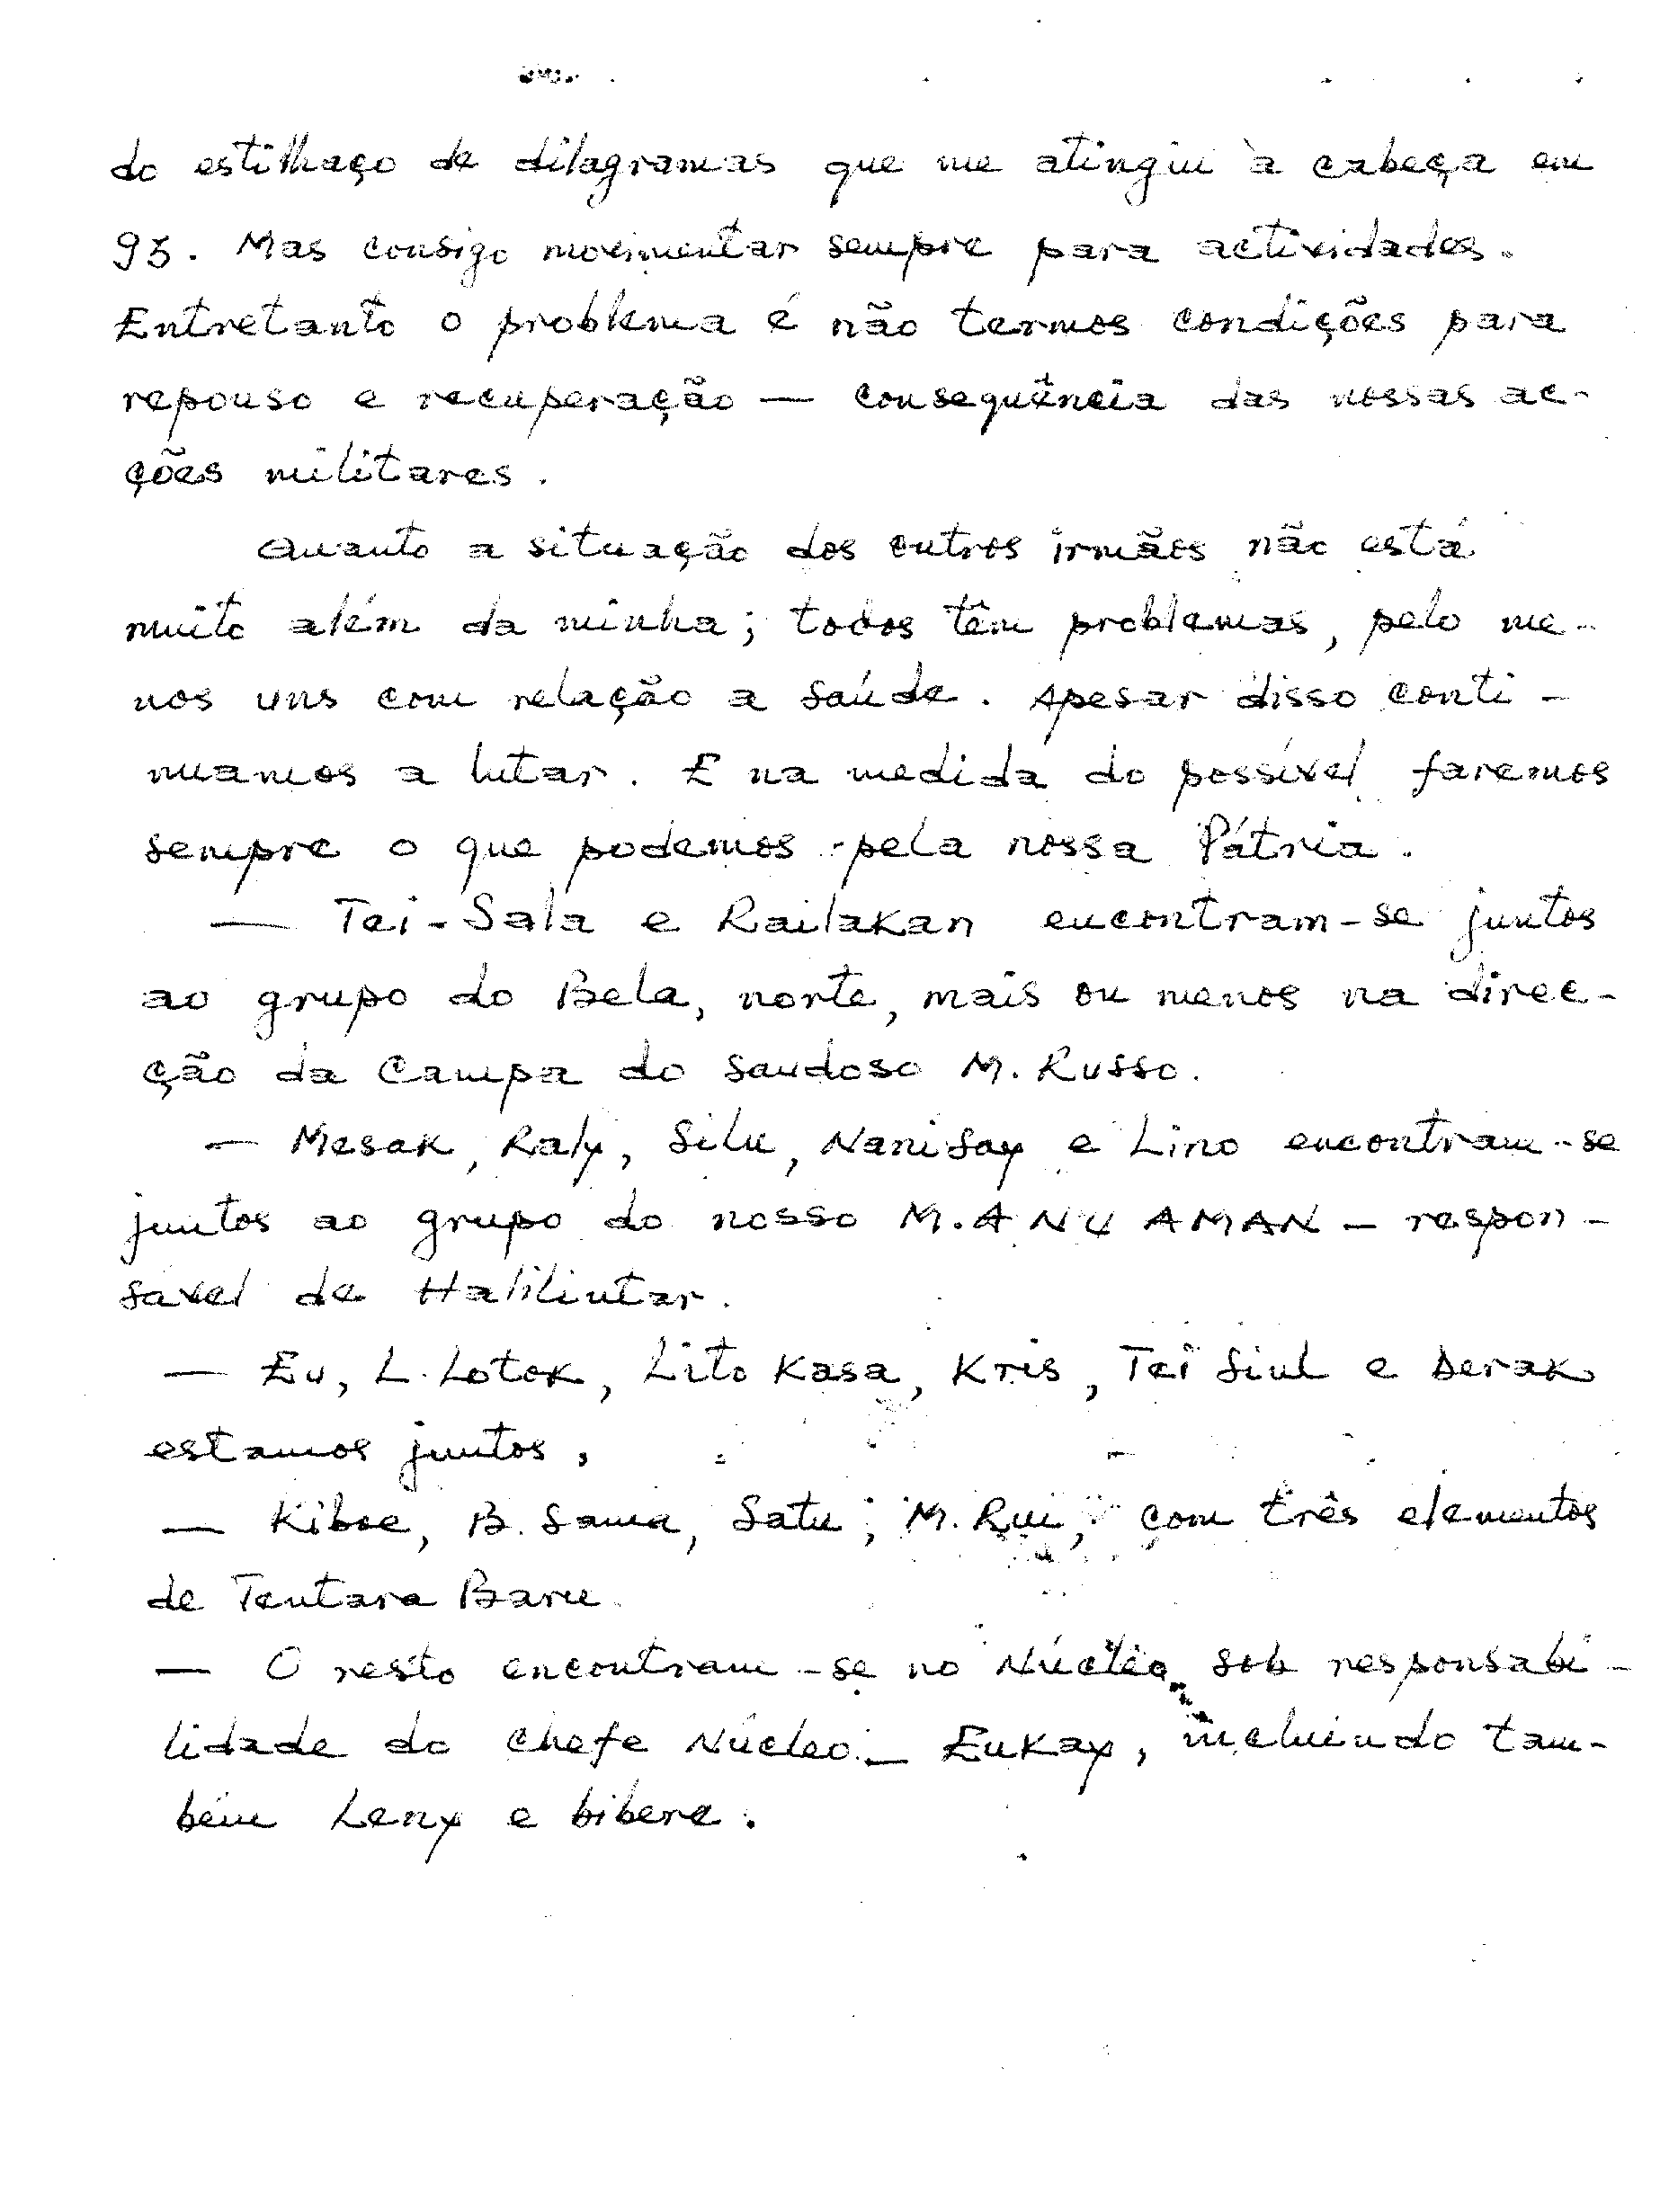 do estilhaço de dilagramas que me atingiu à cabeça em
93. Mas consigo movimentar sempre para actividades.
Entretanto o problema é não termos condições para
repouso e recuperação — consequência das nossas ac-
ções militares.
Quanto a situação dos outros irmãos não está
muito além da minha; todos têm problemas, pelo me-
nos uns com relação a saúde. Apesar disso conti-
nuamos a lutar. E na medida do possível faremos
sempre o que podemos pela nossa Pátria.
— Tei-Sala e Railakan encontram-se juntos
ao grupo do Bela, norte, mais ou menos na direc-
ção da Campa do saudoso M. Russo.
— Mesak, Raly, Silu, Nanisay e Lino encontram-se
juntos ao grupo do nosso M. ANU AMAN - respon-
savel de Halilintar.
— Eu, L. Lotok, Lito Kasa, Kris, Tei Siul e Derak
estamos juntos,
— Kiboe, B. Sama, Satu; M. Rui, com três elementos
de Tentara Baru
— O resto encontram-se no Núcleo, sob responsabi-
lidade do chefe Núcleo - Eukay, incluindo tam-
bém Leny e bibere.